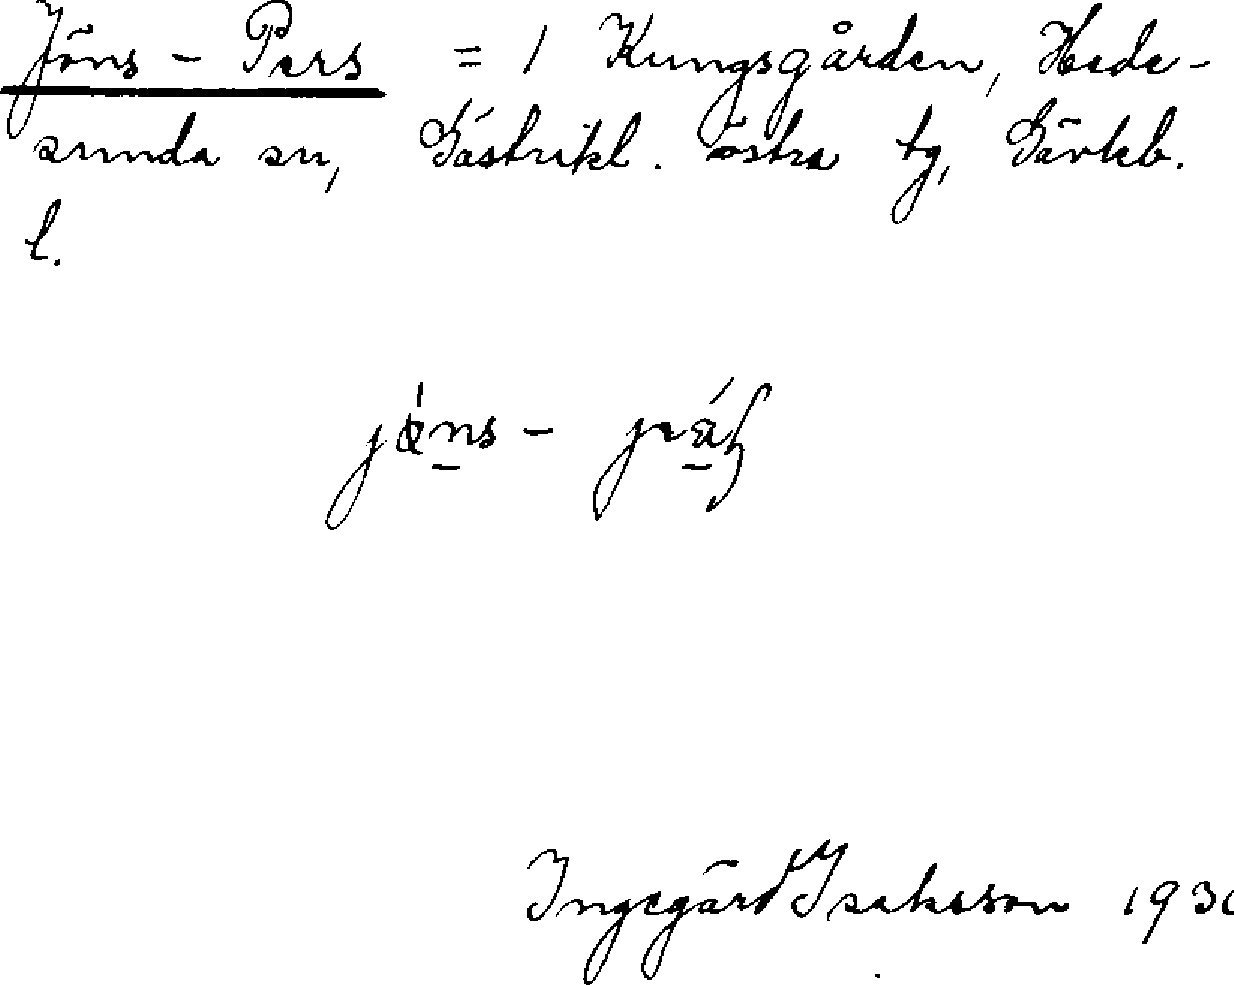 Jöns-Pers = 1 Kungsgården, Hede-
sunda sn, Gästrikl. östra tg, Gävleb.
l.
Ingegärd Isaksson